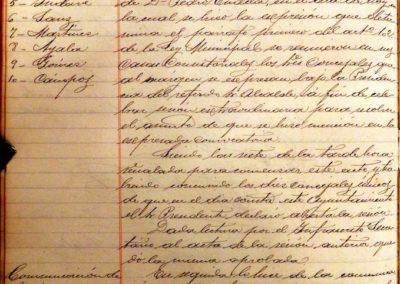 6 - Sanz
7 - Martínez
8 - Ayala
9 - Gómez
10 - Campoz
de Dn. Pedro en el dia
la cual se hizo la espresion que deter
mina el parrafo primero del artº 102
de la Ley Municipal se reunieron en sus
Casas Consistoriales los Sres Concejales que
al margen se espresan bajo la Presiden
cia del referido Sr Alcalde á fin de cele
brar sesion extraordinaria para resolver
el asunto de que se hizo mención en la
espresada convocatoria.
Siendo las siete de la tarde hora
señalada para comenzar este acto y ha
biendo concurrido los diez concejales únicos
de que en el dia consta este Ayuntamiento
el Sr Presidente declaró abierta la sesion
Dada lectura por el infrascrito Secre
tario al acta de la sesion anterior que
dó la misma aprobada.
Comunicación de
En seguida le hice de la comunica